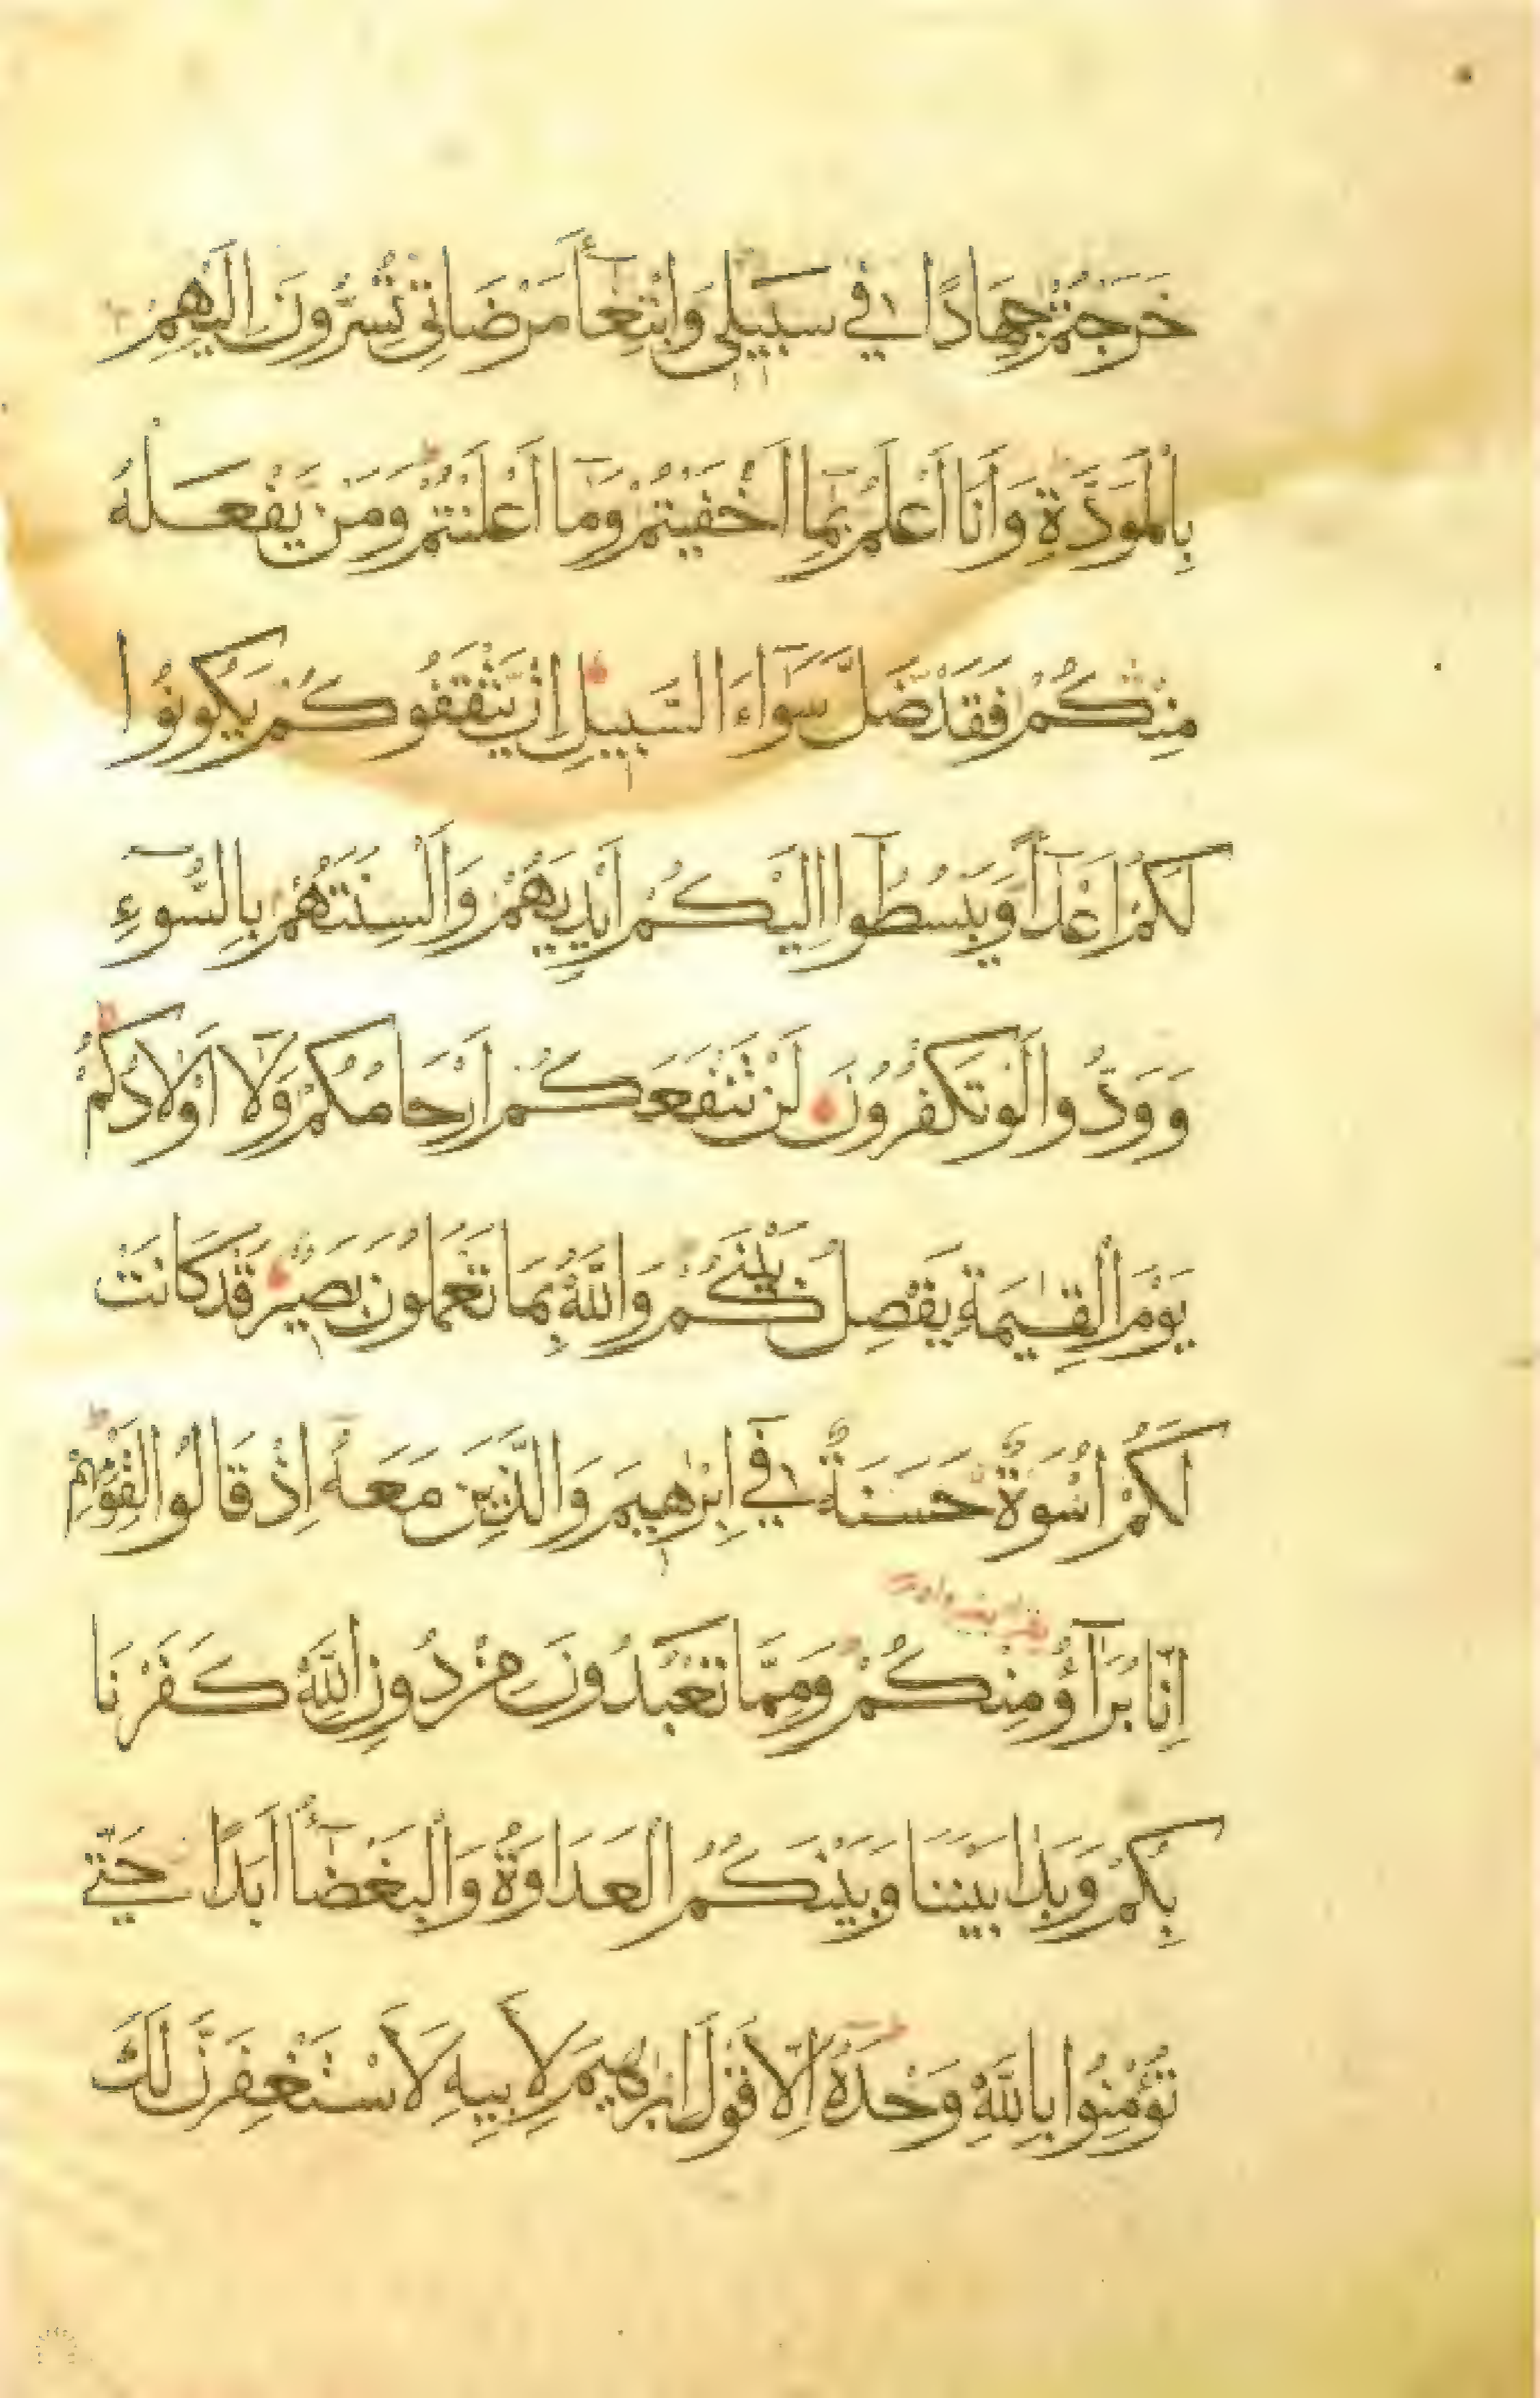 خَرَجْتُمْ جِهَادًا فِي سَبِيلِي وَابْتِغَآءَ مَرْضَاتِي تُسِرُّونَ اِلَيْهِمْ
بِالْمَوَدَّةِ وَاَنَا اَعْلَمُ بِمَآ اَخْفَيْتُمْ وَمَآ اَعْلَنْتُمْ وَمَنْ يَفْعَلْهُ
مِنْكُمْ فَقَدْ ضَلَّ سَوَآءَ السَّبِيلِ اِنْ يَثْقَفُوكُمْ يَكُونُوا
لَكُمْ اَعْدَآءً وَيَبْسُطُوآ اِلَيْكُمْ اَيْدِيَهُمْ وَاَلْسِنَتَهُمْ بِالسُّوٓءِ
وَوَدُّوا لَوْ تَكْفُرُونَ لَنْ تَنْفَعَكُمْ اَرْحَامُكُمْ وَلَآ اَوْلَادُكُمْ
يَوْمَ الْقِيٰمَةِ يَفْصِلُ بَيْنَكُمْ وَاللّٰهُ بِمَا تَعْمَلُونَ بَصِيرٌ قَدْ كَانَتْ
لَكُمْ اُسْوَةٌ حَسَنَةٌ فِي اِبْرٰهِيمَ وَالَّذِينَ مَعَهُ اِذْ قَالُوا لِقَوْمِهِمْ
اِنَّا بُرَآؤُ مِنْكُمْ وَمِمَّا تَعْبُدُونَ مِنْ دُونِ اللّٰهِ كَفَرْنَا
بِكُمْ وَبَدَا بَيْنَنَا وَبَيْنَكُمُ الْعَدَاوَةُ وَالْبَغْضَآءُ اَبَدًا حَتّٰي
تُؤْمِنُوا بِاللّٰهِ وَحْدَهُ اِلَّا قَوْلَ اِبْرٰهِيمَ لِاَبِيهِ لَاَسْتَغْفِرَنَّ لَكَ